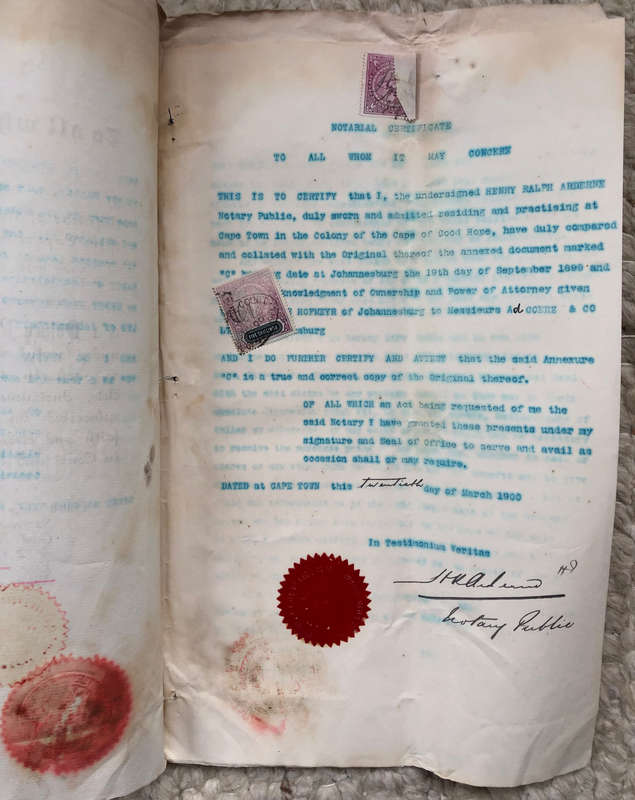 NOTARIAL CERTIFICATE
TO ALL WHOM IT MAY CONCERN
THIS IS TO CERTIFY that I, the undersigned HENRY RALPH ARDERNE
Notary Public, duly sworn and admitted residing and practising at
Cape Town in the Colony of the Cape of Good Hope, have duly compared
and collated with the Original thereof the annexed document marked
"C" date at Johannesburg the 19th day of September 1899 and
knowledgment of Ownership and Power of Attorney given
HOFMEYR of Johannesburg to Messieurs Ad GOERZ & CO
sburg
AND I DO FURTHER CERTIFY AND ATTEST that the said Annexure
"C" is a true and correct copy of the Original thereof.
OF ALL WHICH an Act being requested of me the
said Notary I have granted these presents under my
signature and Seal of Office to serve and avail as
occasion shall or may require.
DATED at CAPE TOWN this twentieth day of March 1900
In Testimonium Veritas
HRArderne
Notary Public